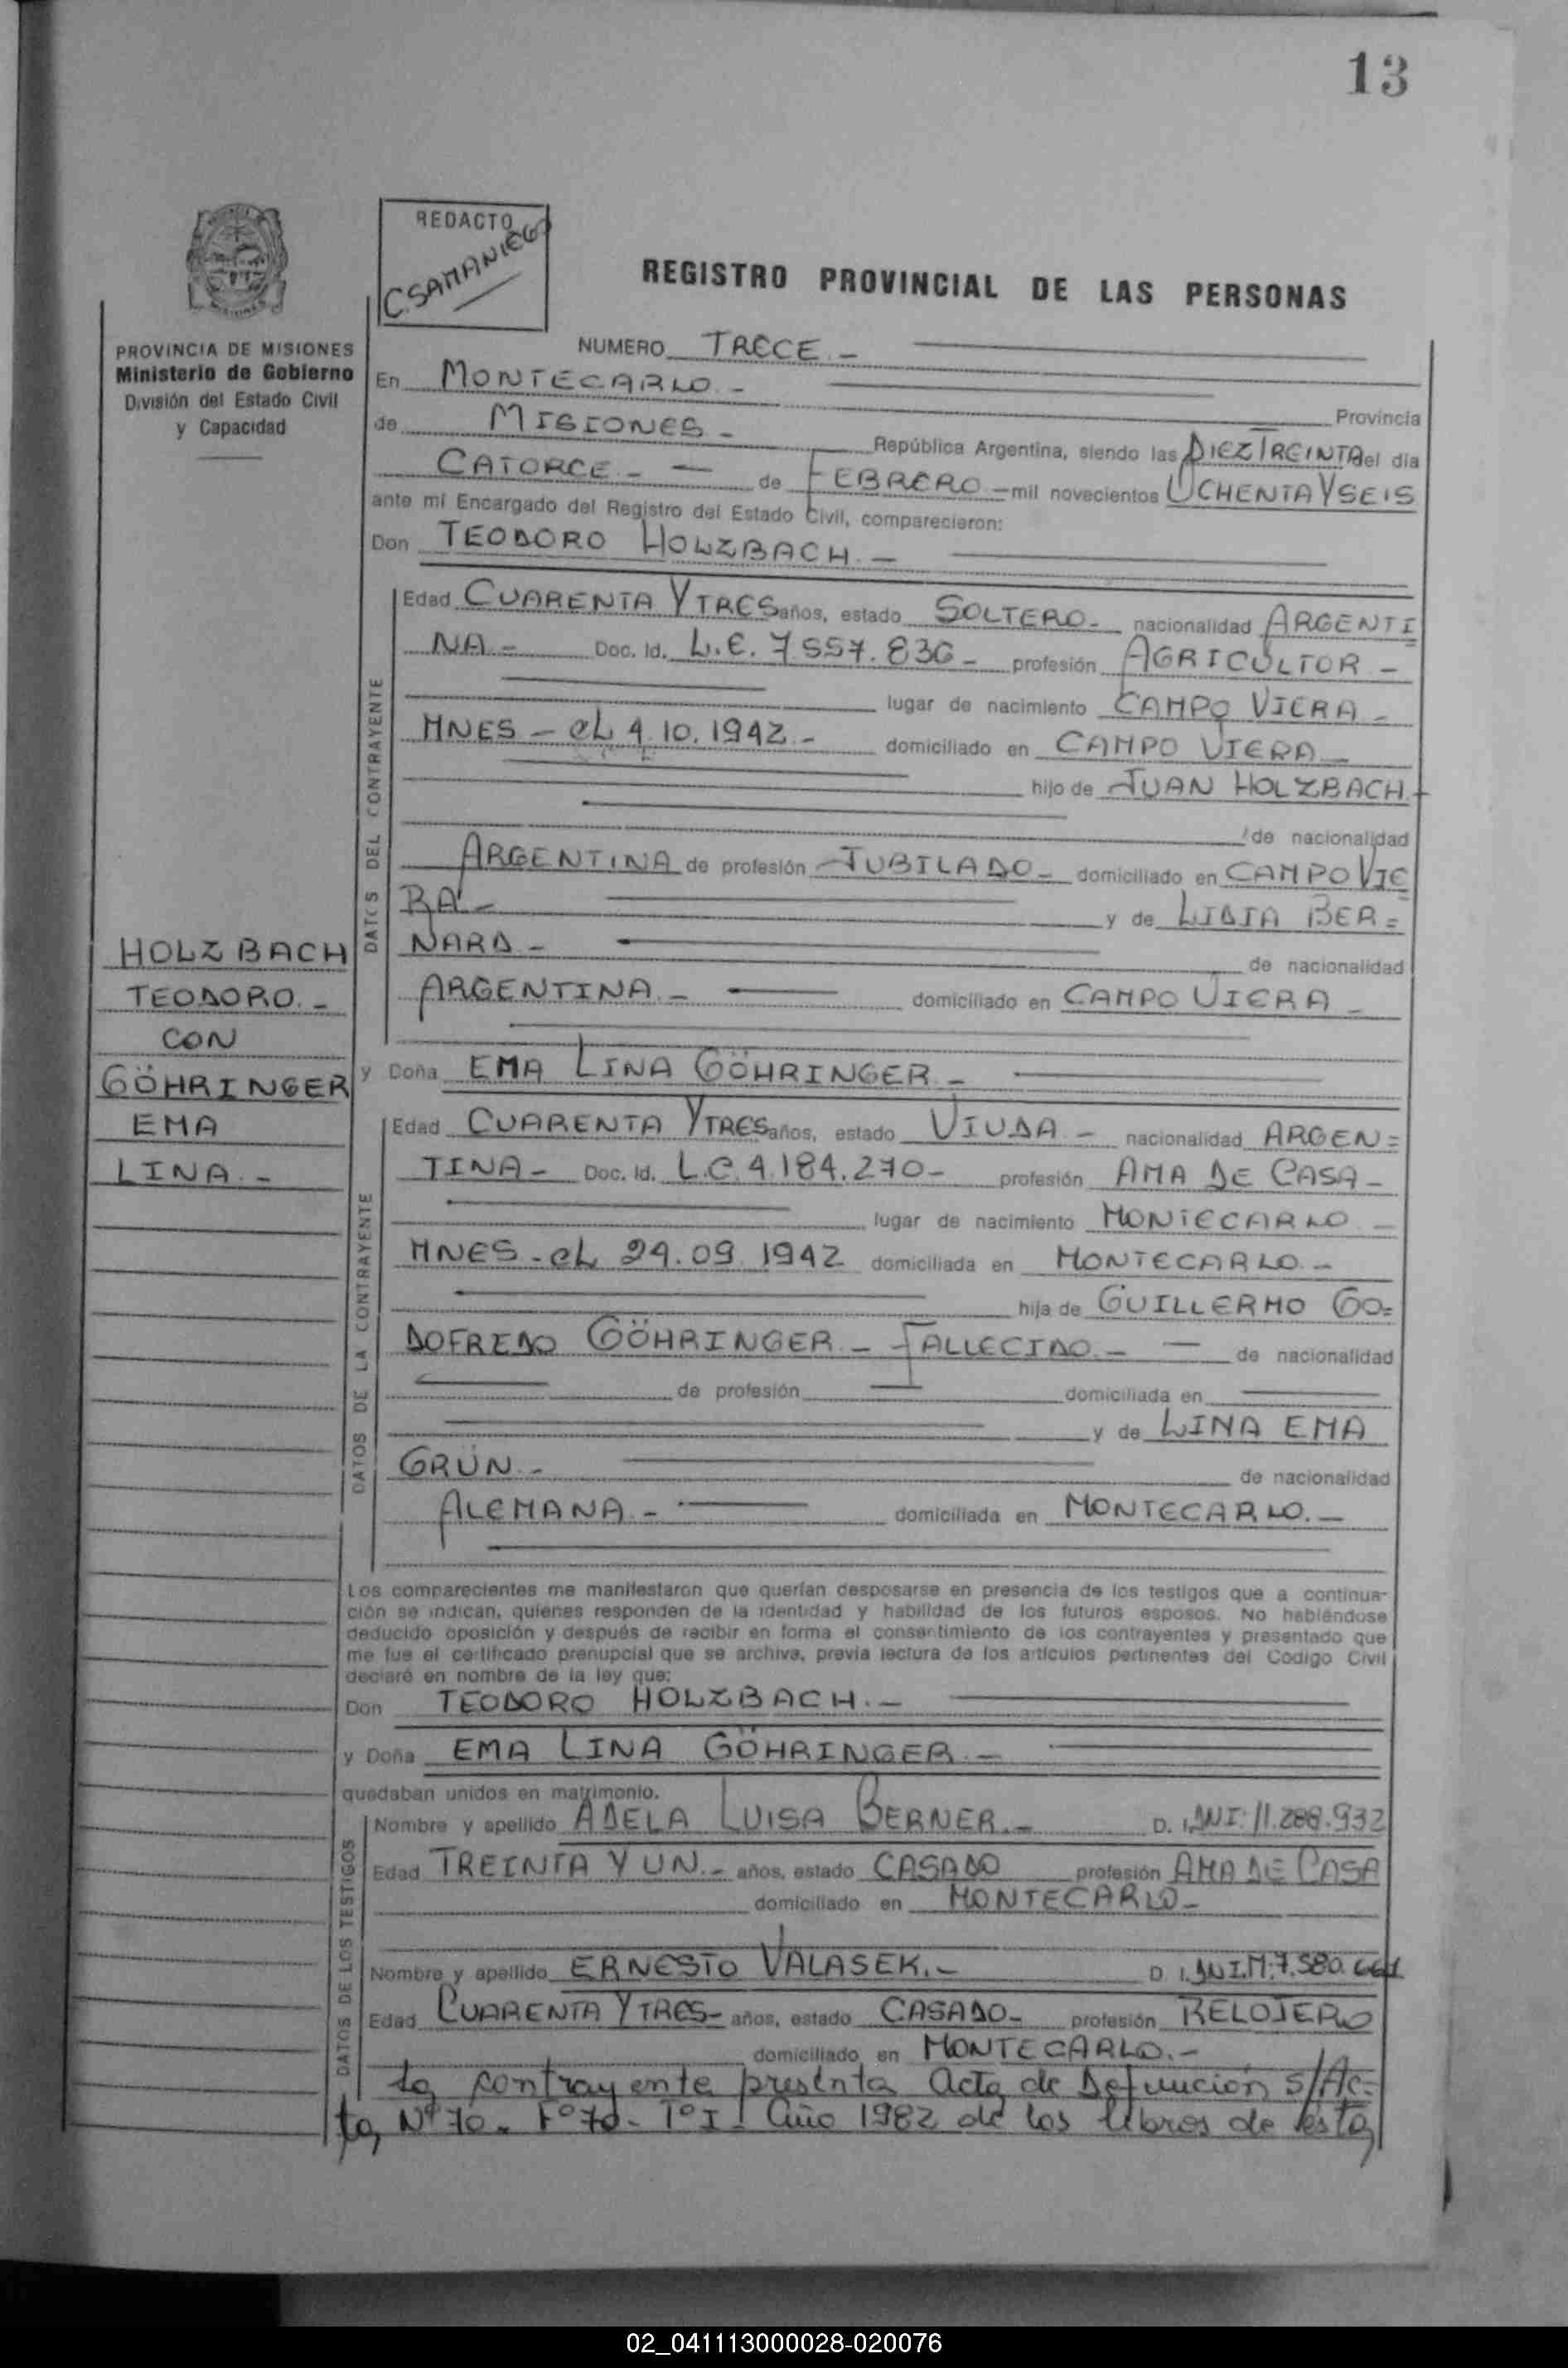 13
REDACTO
C. SAMANIEGO
REGISTRO PROVINCIAL DE LAS PERSONAS
PROVINCIA DE MISIONES
Ministerio de Gobierno
División del Estado Civil
y Capacidad
NUMERO TRECE.-
En MONTECARLO.-
Provincia
de MISIONES.- República Argentina, siendo las DIEZ TREINTA del día
CATORCE.- de FEBRERO - mil novecientos OCHENTA Y SEIS
ante mí Encargado del Registro del Estado Civil, comparecieron:
Don TEODORO HOLZBACH.-
DATOS DEL CONTRAYENTE
Edad CUARENTA Y TRES años, estado SOLTERO.- nacionalidad ARGENTI
NA.- Doc. Id. L.E. 7.557.836- profesión AGRICULTOR -
lugar de nacimiento CAMPO VIERA -
MNES - EL 4.10.1942.- domiciliado en CAMPO VIERA -
hijo de JUAN HOLZBACH.-
de nacionalidad
ARGENTINA de profesión JUBILADO - domiciliado en CAMPO VIE
RA.- y de LIDIA BER=
NARD - de nacionalidad
ARGENTINA.- domiciliado en CAMPO VIERA -
HOLZBACH
TEODORO.-
CON
GÖHRINGER
EMA
LINA.-
y Doña EMA LINA GÖHRINGER.-
DATOS DE LA CONTRAYENTE
Edad CUARENTA Y TRES años, estado VIUDA.- nacionalidad ARGEN=
TINA - Doc. Id. L.C. 4.184.270- profesión AMA DE CASA -
lugar de nacimiento MONTECARLO -
MNES - EL 29.09.1942 domiciliada en MONTECARLO.-
hija de GUILLERMO GO=
DOFREDO GÖHRINGER - FALLECIDO.- de nacionalidad
de profesión domiciliada en
y de LINA EMA
GRÜN.- de nacionalidad
ALEMANA.- domiciliada en MONTECARLO.-
Los comparecientes me manifestaron que querían desposarse en presencia de los testigos que a continua-
ción se indican, quienes responden de la identidad y habilidad de los futuros esposos. No habiéndose
deducido oposición y después de recibir en forma el consentimiento de los contrayentes y presentado que
me fue el certificado prenupcial que se archiva, previa lectura de los artículos pertinentes del Código Civil
declaré en nombre de la ley que:
Don TEODORO HOLZBACH.-
y Doña EMA LINA GÖHRINGER.-
quedaban unidos en matrimonio.
DATOS DE LOS TESTIGOS
Nombre y apellido ADELA LUISA BERNER.- D. I. DNI: 11.288.932
Edad TREINTA Y UN.- años, estado CASADO profesión AMA DE CASA
domiciliado en MONTECARLO -
Nombre y apellido ERNESTO VALASEK.- D. I. DNI.M: 7.580.661
Edad CUARENTA Y TRES- años, estado CASADO- profesión RELOJERO
domiciliado en MONTECARLO.-
La contrayente presenta Acta de Defunción s/Ac=
ta, Nº 70. Fº 70- Tº I- Año 1982 de los libros de ésta,
02_041113000028-020076